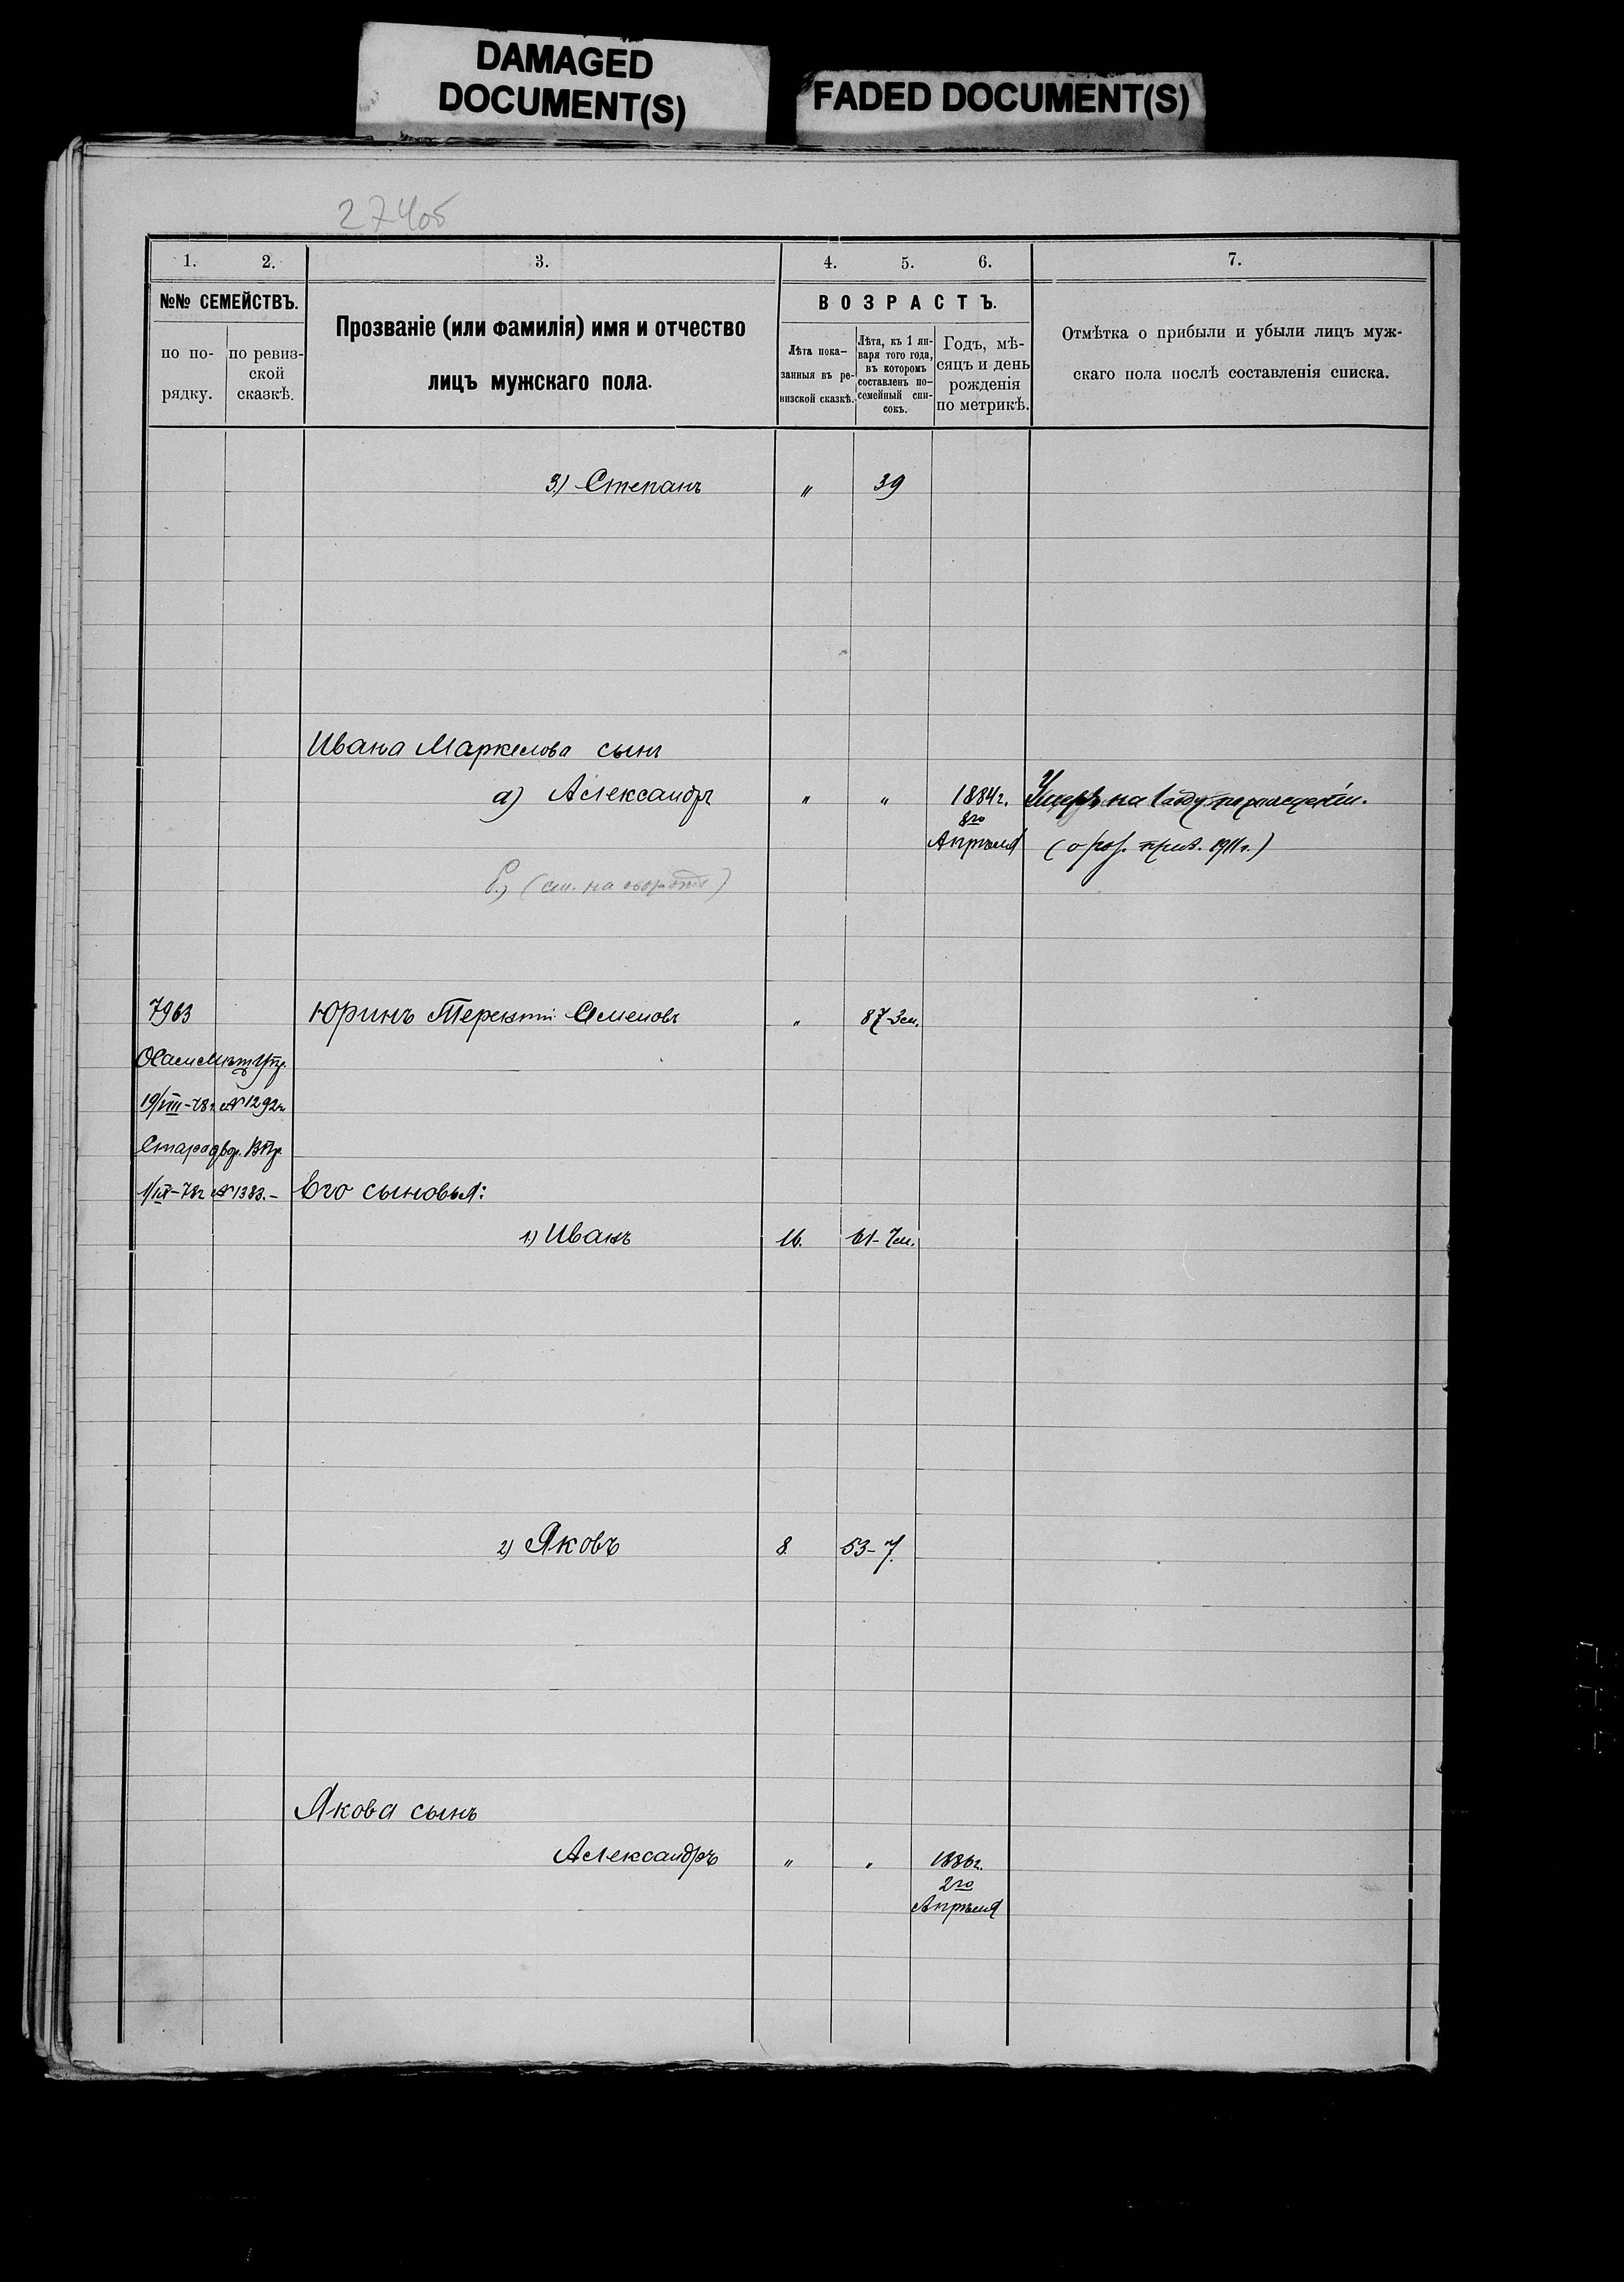 DAMAGED
DOCUMENT(S)
FADED DOCUMENT(S)
274об
1. 2. 3. 4. 5. 6. 7.
№№ СЕМЕЙСТВЪ.
по по-
рядку.
по ревиз-
ской
сказкѣ.
Прозваніе (или фамилія) имя и отчество
лицъ мужскаго пола.
ВОЗРАСТЪ.
Лѣта пока-
занныя въ ре-
визской сказкѣ.
Лѣта, къ 1 ян-
варя того года,
въ которомъ
составленъ по-
семейный спи-
сокъ.
Годъ, мѣ-
сяцъ и день
рожденія
по метрикѣ.
Отмѣтка о прибыли и убыли лицъ муж-
скаго пола послѣ составленія списка.
3.) Степанъ " 39
Ивана Маркелова сынъ
а) Александръ " " 1884 г. Умеръ на 1 году по рождении.
8го
Апрѣля (1911 г.)
(см. на обороте)
7963 Юринъ Терентій Семеновъ " 87-3 м.
19/VIII-78 г. № 1292
Стародвор.
1/IX-78 г. № 1383.- Его сыновья:
1.) Иванъ 16. 61-7 м.
2) Яковъ 8. 53-7.
Якова сынъ
Александръ " " 1886 г.
2го
Апрѣля